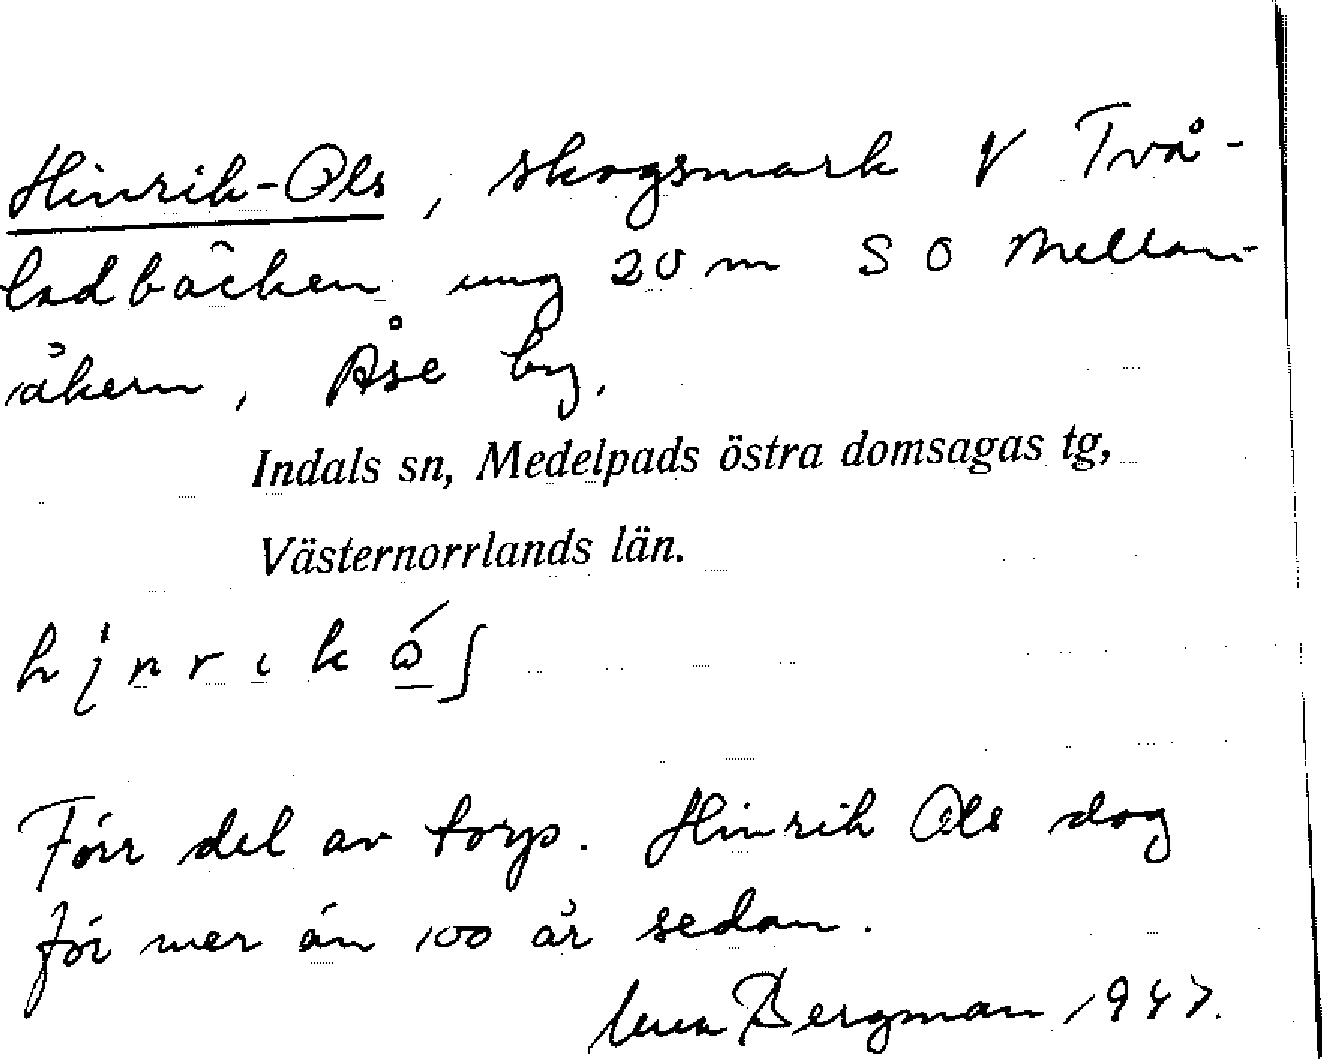 Hinrik-Ols, skogsmark V Två-
ladbäcken ung 20 m SO Mellan-
åkern, Åse by.
Indals sn, Medelpads östra domsagas tg,
Västernorrlands län.
Förr del av torp. Hinrik Ols dog
för mer än 100 år sedan.
Bergman 1947.